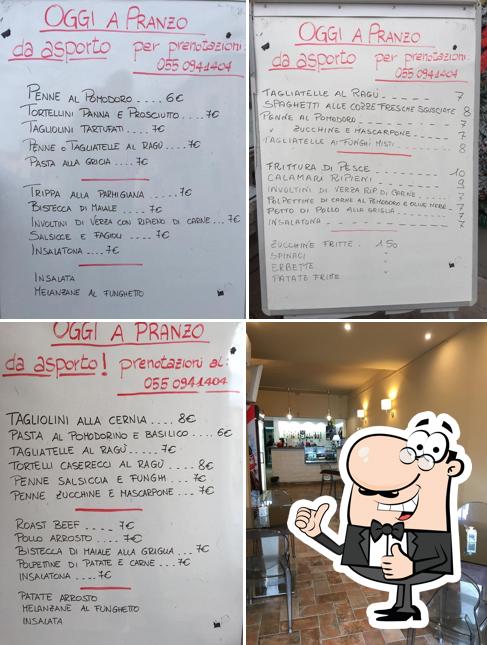 OGGI A PRANZO
da asporto per prenotazioni:
055 0941404
PENNE AL POMODORO .... 6€
TORTELLINI PANNA E PROSCIUTTO ....7€
TAGLIOLINI TARTUFATI .... 7€
PENNE O TAGLIATELLE AL RAGÙ .... 7€
PASTA ALLA GRICIA .... 7€
TRIPPA ALLA PARMIGIANA .....7€
BISTECCA DI MAIALE .... 7€
INVOLTINI DI VERZA CON RIPIENO DI CARNE...7€
SALSICCE E FAGIOLI .... 7€
INSALATONA ....7€
INSALATA
MELANZANE AL FUNGHETTO
OGGI A PRANZO
da asporto per prenotazioni
055 0941404
TAGLIATELLE AL RAGÙ ------- 7
SPAGHETTI ALLE COZZE FRESCHE SGUSCIATE 8
PENNE AL POMODORO ------- 7
" ZUCCHINE E MASCARPONE ----- 7
TAGLIATELLE AI FUNGHI MISTI ----- 8
FRITTURA DI PESCE ------- 10
CALAMARI RIPIENI ------- 9
INVOLTINI DI VERZA RIP. DI CARNE ---- 7
POLPETTINE DI CARNE AL POMODORO E OLIVE NERE - 7
PETTO DI POLLO ALLA GRIGLIA ---- 7
INSALATONA ------- 7
ZUCCHINE FRITTE . 1.50
SPINACI "
ERBETTE "
PATATE FRITTE "
OGGI A PRANZO
da asporto! prenotazioni al:
055 0941404
TAGLIOLINI ALLA CERNIA .... 8€
PASTA AL POMODORINO E BASILICO .... 6€
TAGLIATELLE AL RAGÙ ..... 7€
TORTELLI CASERECCI AL RAGÙ .... 8€
PENNE SALSICCIA E FUNGHI ... 7€
PENNE ZUCCHINE E MASCARPONE ... 7€
ROAST BEEF .... 7€
POLLO ARROSTO .... 7€
BISTECCA DI MAIALE ALLA GRIGLIA ... 7€
POLPETTINE DI PATATE E CARNE ... 7€
INSALATONA .... 7€
PATATE ARROSTO
MELANZANE AL FUNGHETTO
INSALATA